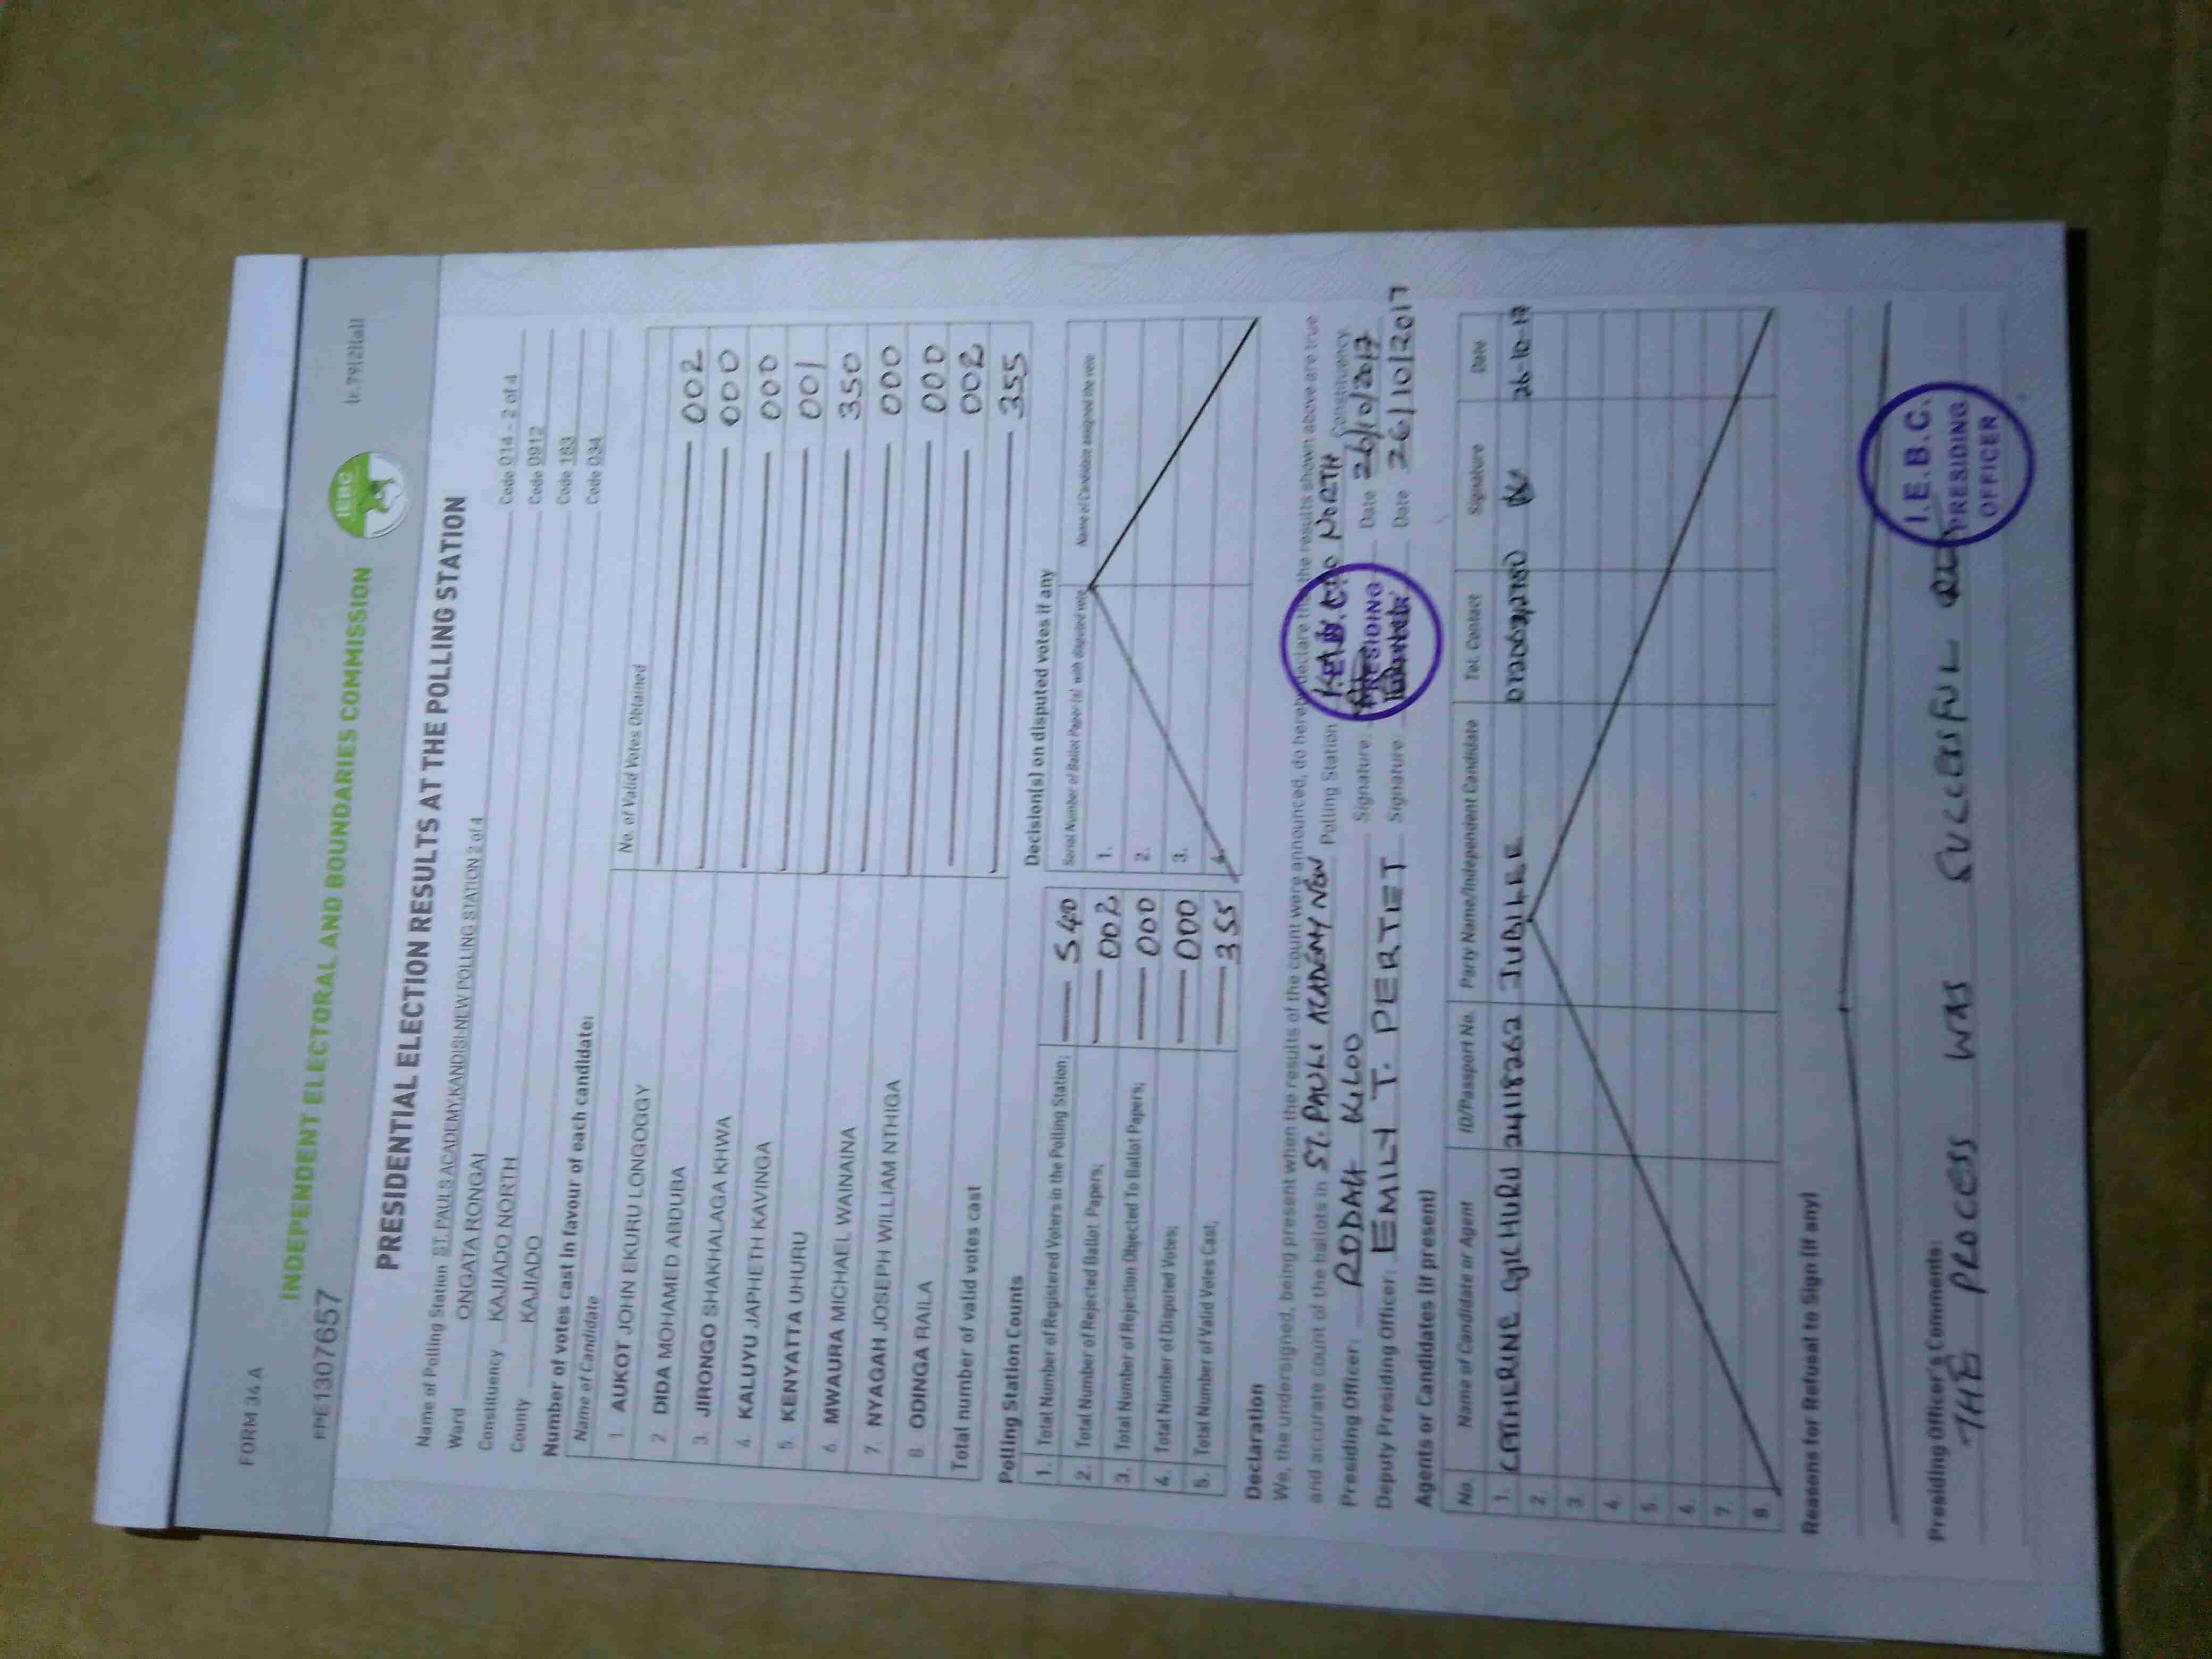 FORM 34A
(r.79(2)(a))
PPE1307657
INDEPENDENT ELECTORAL AND BOUNDARIES COMMISSION
IEBC
PRESIDENTIAL ELECTION RESULTS AT THE POLLING STATION
Name of Polling Station ST. PAULS ACADEMY,KANDISI-NEW POLLING STATION 2 of 4 Code 014 - 2 of 4
Ward ONGATA RONGAI Code 0912
Constituency KAJIADO NORTH Code 183
County KAJIADO Code 034
Number of votes cast in favour of each candidate:
Name of Candidate No. of Valid Votes Obtained
1. AUKOT JOHN EKURU LONGOGGY 002
2 DIDA MOHAMED ABDUBA 000
3. JIRONGO SHAKHALAGA KHWA 000
4. KALUYU JAPHETH KAVINGA 001
5. KENYATTA UHURU 350
6. MWAURA MICHAEL WAINAINA 000
7. NYAGAH JOSEPH WILLIAM NTHIGA 000
8 ODINGA RAILA 002
Total number of valid votes cast 355
Polling Station Counts
1. Total Number of Registered Voters in the Polling Station; 540
2. Total Number of Rejected Ballot Papers; 002
3. Total Number of Rejection Objected To Ballot Papers; 000
4. Total Number of Disputed Votes; 000
5. Total Number of Valid Votes Cast; 355
Decision(s) on disputed votes if any
Serial Number of Ballot Paper (s) with disputed vote Name of Candidate assigned the vote
1.
2.
3.
4.
Declaration
We, the undersigned, being present when the results of the count were announced, do hereby declare that the results shown above are true
and accurate count of the ballots in ST. PAULS ACADEMY NEW Polling Station NORTH Constituency.
Presiding Officer: RODAH KILOO Signature: Date 26/10/2017
Deputy Presiding Officer: EMILY T. PERTET Signature: Date 26/10/2017
PRESIDING
Agents or Candidates (if present)
No. Name of Candidate or Agent ID/Passport No. Party Name/Independent Candidate Tel. Contact Signature Date
1. CATHERINE GICHURU 24118262 JUBILEE 26-10-17
2
3
4
5.
6.
7.
8.
Reasons for Refusal to Sign (if any)
Presiding Officer's Comments:
THE PROCESS WAS SUCCESSFUL
I.E.B.C.
PRESIDING
OFFICER